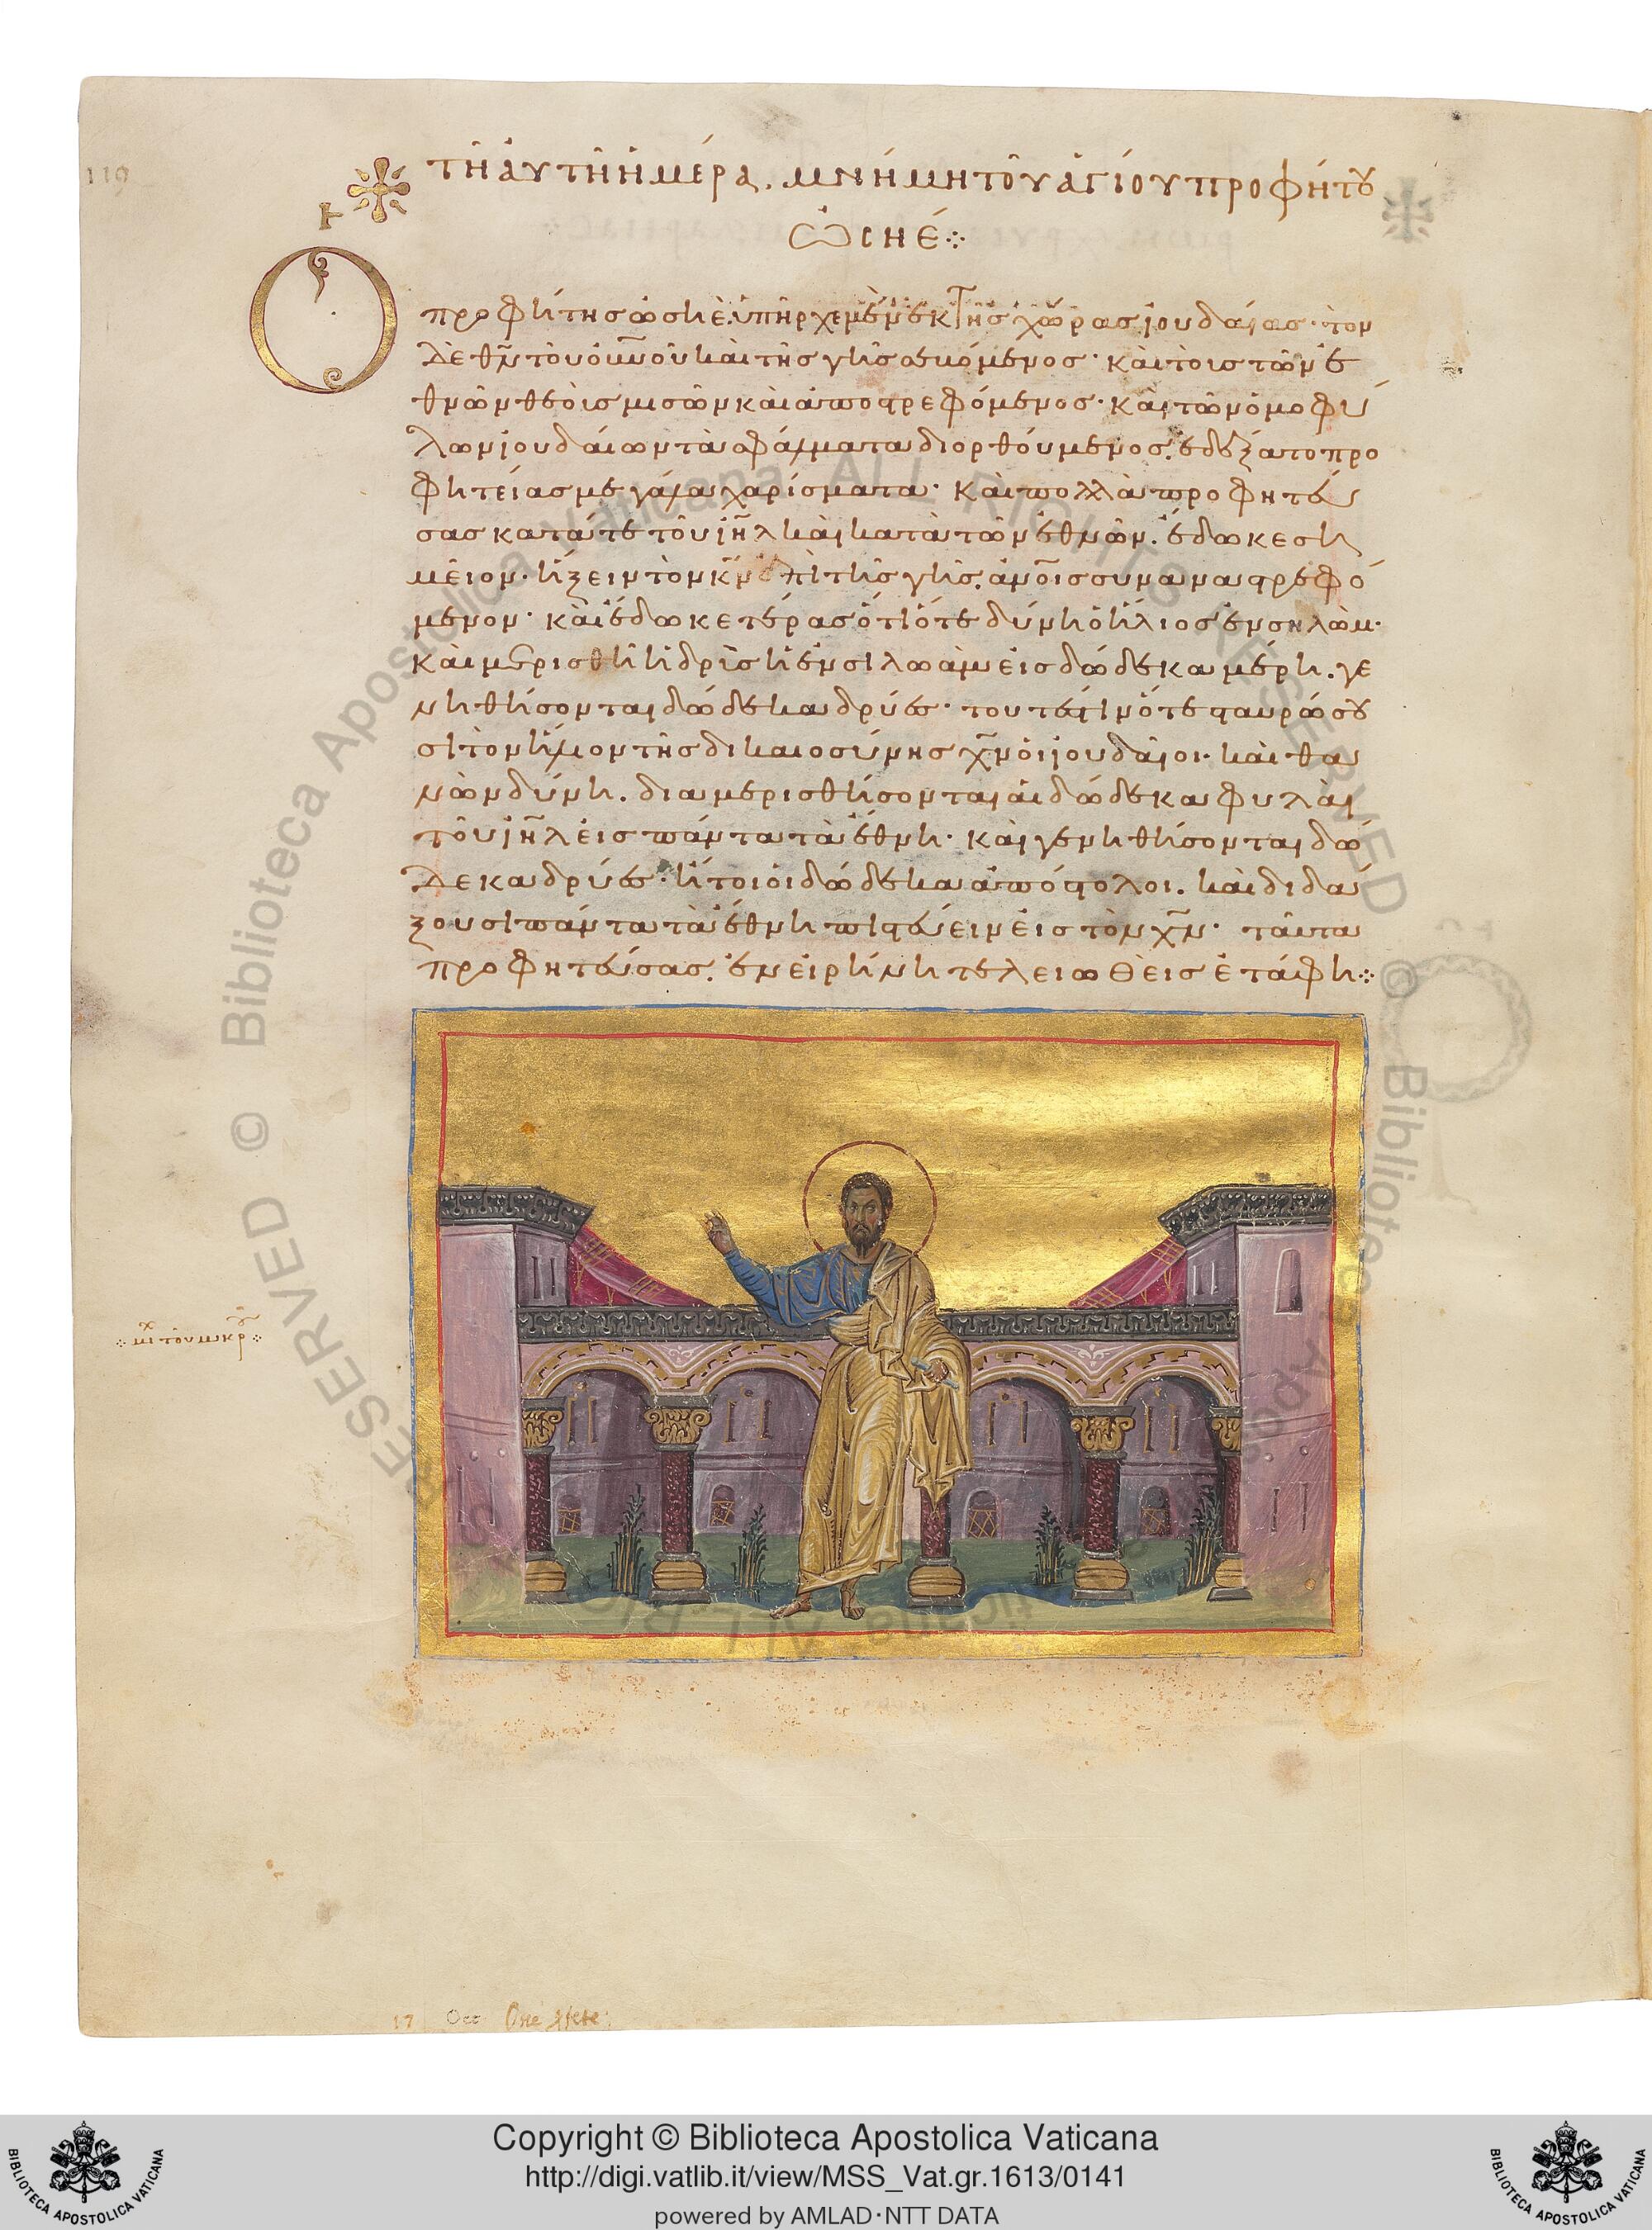 119
τῆ ἀυτῆ ἡμέρα. μνήμη τοῦ ἁγίου προφήτου
Ὠσηέ
Ὁ
προφήτης ὡσηὲ. ὑπῆρχε μὲν ἐκ τῆς χώρας ἰουδαίας· τὸν
δὲ θν τοῦ οὐνοῦ καὶ τῆς γῆς σεβόμενος· καὶ τοῖς τῶν ἐ
θνῶν θεοῖς μισῶν καὶ ἀποστρεφόμενος· καὶ τῶν ὁμοφύ
λων ἰουδαίων τὰ σφάλματα διορθούμενος. ἐδέξατο προ
φητείας μεγάλα χαρίσματα· καὶ πολλὰ προφητεύ
σας κατά τε τοῦ ἰηλ καὶ κατὰ τῶν ἐθνῶν. ἔδωκε ση
μεῖον· ἥξειν τὸν κν ἐπὶ τῆς γῆς. ἀνοις συναναστρεφό
μενον· καὶ ἔδωκε τέρας ὅτι ὅτε δύνη ὁ ἥλιος ἐν σηλὼμ·
καὶ μερισθῆ ἡ δρῦς ἡ ἐν σιλωὰμ εἰς δώδεκα μέρη. γε
νηθήσονται δώδεκα δρύες· τουτέστιν ὅτε σταυρώσου
σι τὸν ἥλιον τῆς δικαιοσύνης χν οἱ ἰουδαῖοι· καὶ θα
νὼν δύνη. διαμερισθήσονται αἱ δώδεκα φυλαὶ
τοῦ ἰηλ εἰς πάντα τὰ ἔθνη· καὶ γενηθήσονται δώ
δεκα δρύες· ἤτοι οἱ δώδεκα ἀπόστολοι. καὶ διδά
ξουσι πάντα τὰ ἔθνη πιστεύειν εἰς τὸν χν· ταῦτα
προφητεύσας. ἐν εἰρήνη τελειωθεὶς ἐτάφη
17 Occ
Copyright © Biblioteca Apostolica Vaticana
http://digi.vatlib.it/view/MSS_Vat.gr.1613/0141
powered by AMLAD·NTT DATA
BIBLIOTECA APOSTOLICA VATICANA
BIBLIOTECA APOSTOLICA VATICANA
Biblioteca Apostolica Vaticana ALL RIGHTS RESERVED ©